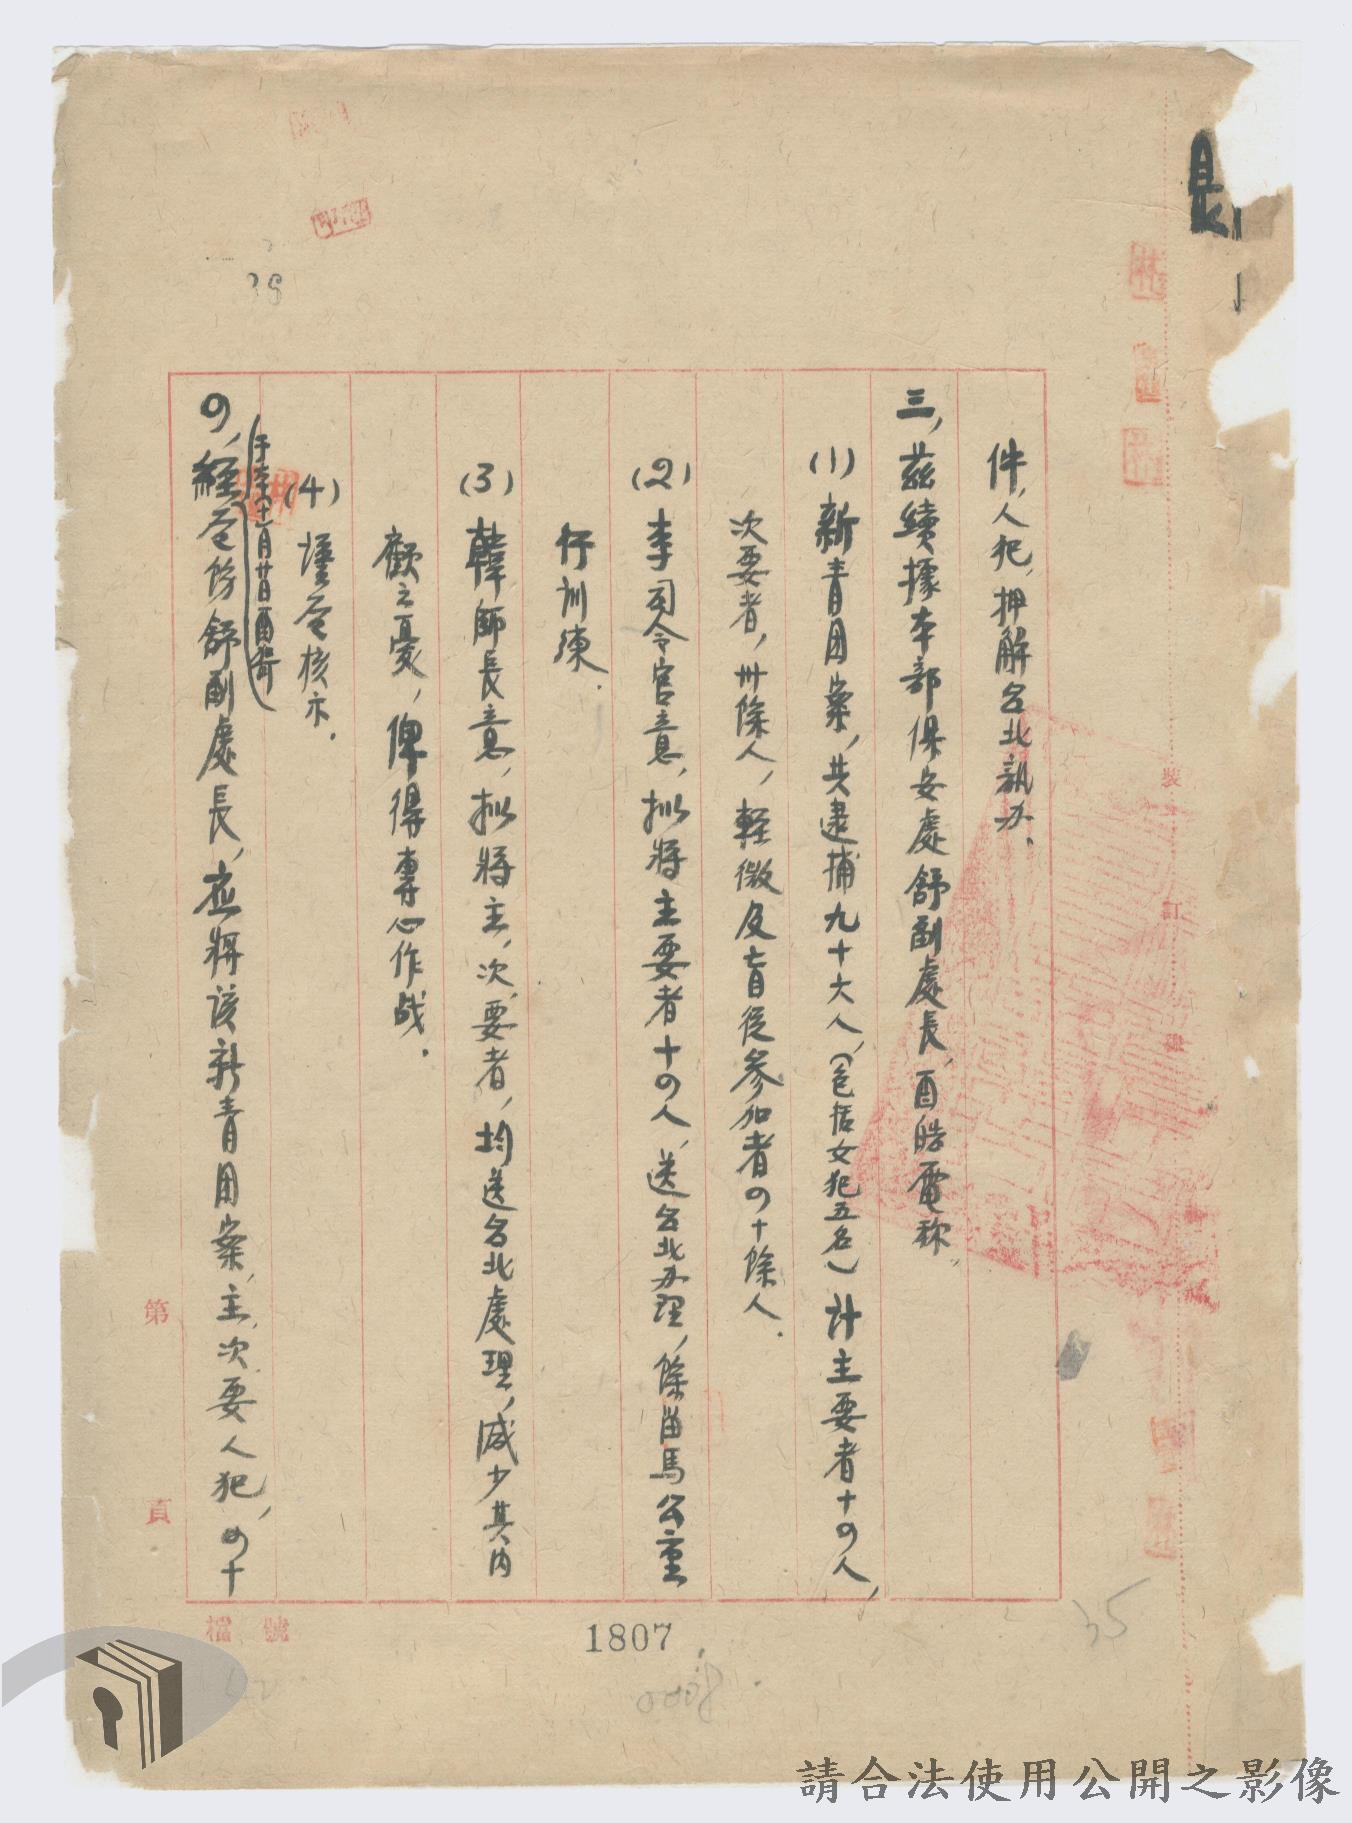 件，人犯，押解台北訊办．
三，茲續據本部保安處舒副處長，酉皓電称，
(1)新青团案，共逮捕九十六人，(包括女犯五名)計主要者十四人，
次要者，卅餘人，輕微及盲從参加者四十餘人．
(2)李司令官意，拟將主要者十四人，送台北办理，餘留馬公重
行训練．
(3)韓師長意，拟將主，次要者，均送台北處理，減少其内
顧之憂，俾得專心作战．
(4)謹电核示．
于本(十)月廿日酉
四，經电飭舒副處長，应將该新青团案，主，次要人犯，四十
裝
訂
線
第
頁
檔號
1807
35
請合法使用公開之影像